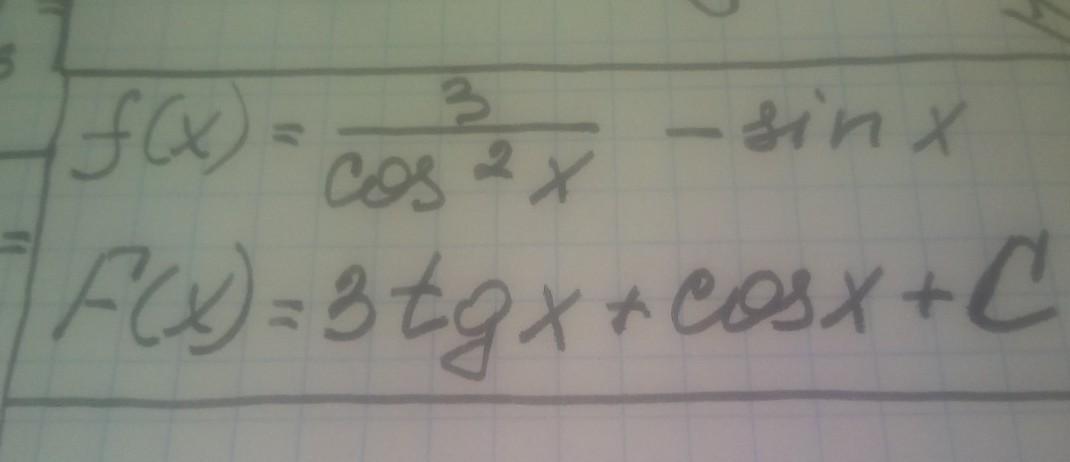 f(x) = 3/cos²x - sin x
F(x) = 3 tg x + cos x + C